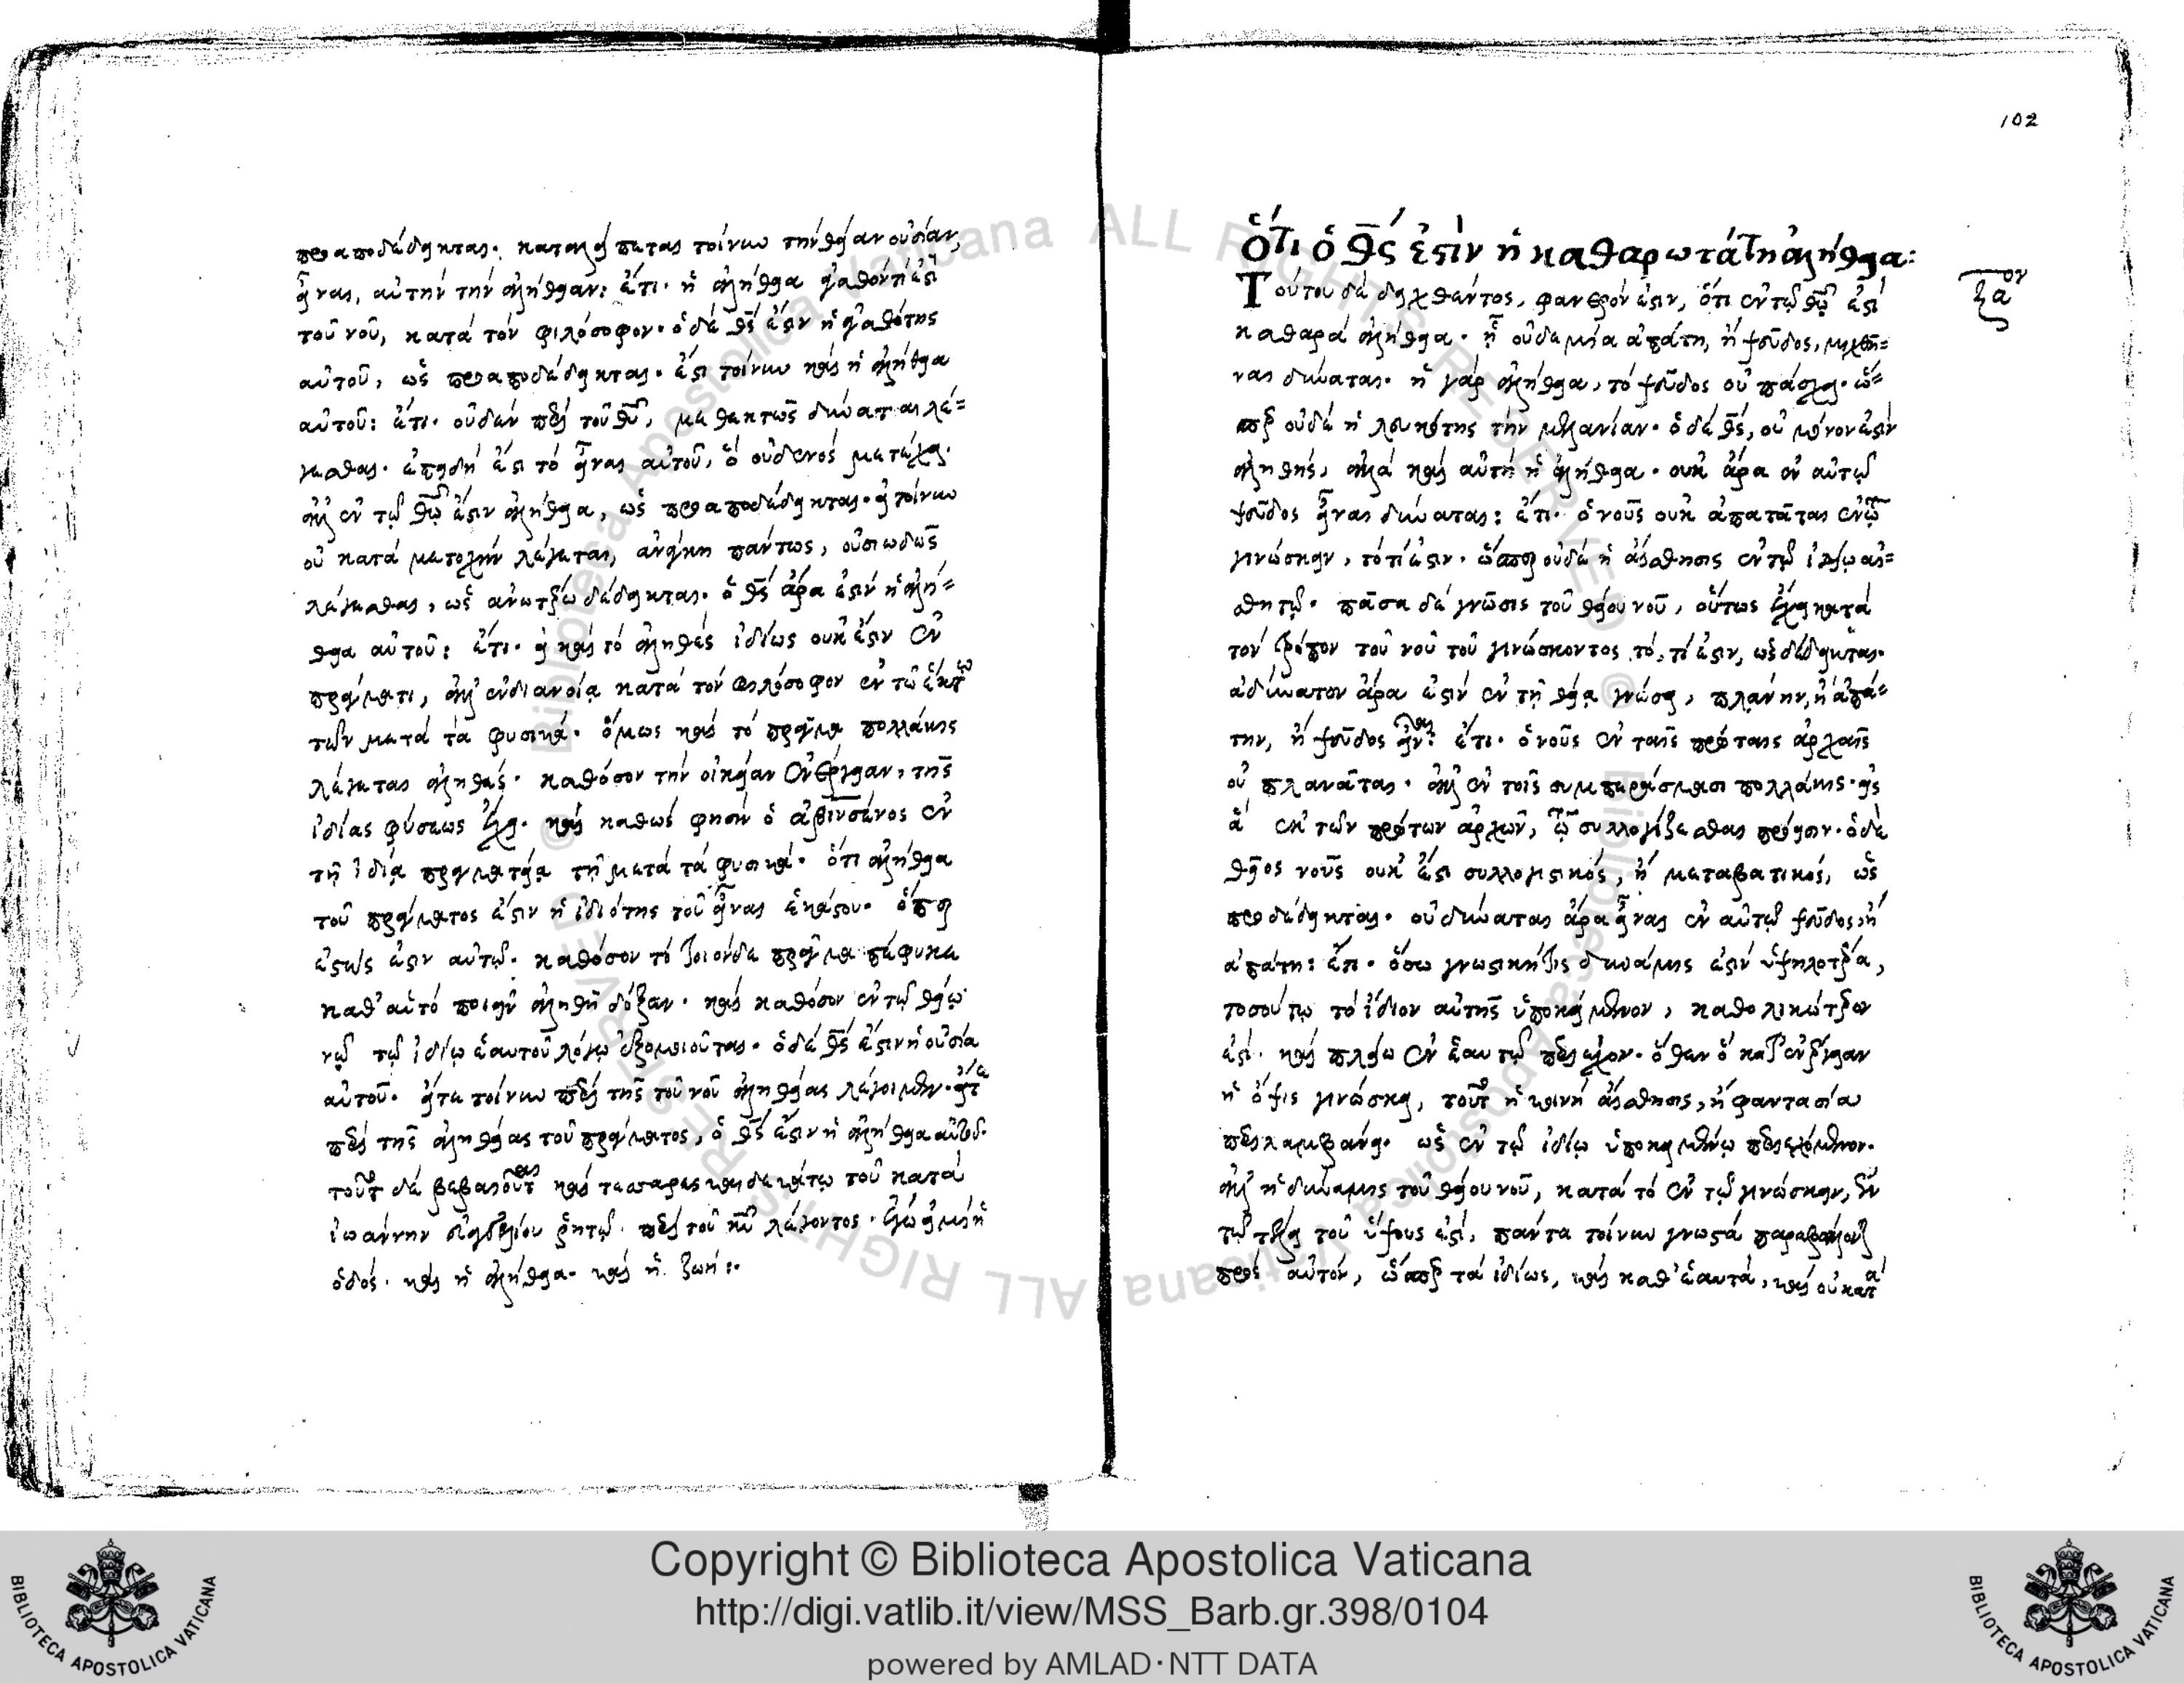 προαποδέδεικται. καταλείπεται τοίνυν τὴν θείαν οὐσίαν,
εἶναι, αὐτὴν τὴν ἀλήθειαν: ἔτι. ἡ ἀλήθεια ἀγαθόν τί ἐστι
τοῦ νοῦ, κατὰ τὸν φιλόσοφον. ὁ δὲ θς ἐστιν ἡ ἀγαθότης
αὐτοῦ, ὡς προαποδέδεικται. ἔστι τοίνυν καὶ ἡ ἀλήθεια
αὐτοῦ: ἔτι. οὐδὲν περὶ τοῦ θυ, μεθεκτῶς δύναται λέ=
γεσθαι. ἐπειδή ἐστι τὸ εἶναι αὐτοῦ, ὃ οὐδενὸς μετέχει.
ἀλλ' ἐν τῷ θῳ ἐστιν ἀλήθεια, ὡς προαποδέδεικται. εἰ τοίνυν
οὐ κατὰ μετοχὴν λέγεται, ἀνάγκη πάντως, οὐσιωδῶς
λέγεσθαι, ὡς ἀνωτέρω δέδεικται. ὁ θς ἄρα ἐστὶν ἡ ἀλή=
θεια αὐτοῦ: ἔτι. εἰ καὶ τὸ ἀληθὲς ἰδίως οὐκ ἔστιν ἐν
πράγματι, ἀλλ' ἐν διανοίᾳ κατὰ τὸν φιλόσοφον ἐν τῷ ἕκτῳ
τῶν μετὰ τὰ φυσικά. ὅμως καὶ τὸ πρᾶγμα πολλάκις
λέγεται ἀληθές. καθόσον τὴν οἰκείαν ἐνέργειαν, τῆς
ἰδίας φύσεως ἔχει. καὶ καθώς φησιν ὁ ἀβινσένος ἐν
τῇ ἰδίᾳ πραγματείᾳ τῇ μετὰ τὰ φυσικά. ὅτι ἀλήθεια
τοῦ πράγματος ἐστὶν ἡ ἰδιότης τοῦ εἶναι ἑκάστου. ὅπερ
ἑστώς ἐστιν αὐτῷ. καθόσον τὸ τοιόνδε πρᾶγμα πέφυκε
καθ' αὑτὸ ποιεῖν ἀληθῆ δόξαν. καὶ καθόσον ἐν τῷ θείῳ
νῷ τῷ ἰδίῳ ἑαυτοῦ λόγῳ ἐξομοιοῦται. ὁ δὲ θς ἐστιν ἡ οὐσία
αὐτοῦ. εἴτε τοίνυν περὶ τῆς τοῦ νοῦ ἀληθείας λέγοιμεν. εἴτε
περὶ τῆς ἀληθείας τοῦ πράγματος, ὁ θς ἐστιν ἡ ἀλήθεια αὐτοῦ.
τοῦτο δὲ βεβαιοῦται καὶ τεσσαρεσκαιδεκάτῳ τοῦ κατὰ
ἰωάννην εὐαγγελίου ῥητῷ. περὶ τοῦ κυ λέγοντος. ἐγώ εἰμι ἡ
ὁδός. καὶ ἡ ἀλήθεια. καὶ ἡ ζωή:.
102
ὅτι ὁ θς ἐστὶν ἡ καθαρωτάτη ἀλήθεια:
ξα ον
Τούτου δὲ δειχθέντος, φανερόν ἐστιν, ὅτι ἐν τῷ θῷ ἐστι
καθαρὰ ἀλήθεια. ᾗ οὐδεμία ἀπάτη, ἢ ψεῦδος, μιχθῆ=
ναι δύναται. ἡ γὰρ ἀλήθεια, τὸ ψεῦδος οὐ πάσχει. ὥσ=
περ οὐδὲ ἡ λευκότης τὴν μελανίαν. ὁ δὲ θς, οὐ μόνον ἐστὶν
ἀληθής, ἀλλὰ καὶ αὐτὴ ἡ ἀλήθεια. οὐκ ἄρα ἐν αὐτῷ
ψεῦδος εἶναι δύναται: ἔτι. ὁ νοῦς οὐκ ἀπατᾶται ἐν τῷ
γινώσκειν, τὸ τί ἐστιν. ὥσπερ οὐδὲ ἡ αἴσθησις ἐν τῷ ἰδίῳ αἰσ=
θητῷ. πᾶσα δὲ γνῶσις τοῦ θείου νοῦ, οὕτως ἔχει κατὰ
τὸν τρόπον τοῦ νοῦ τοῦ γινώσκοντος τὸ, τί ἐστιν, ὡς δέδεικται.
ἀδύνατον ἄρα ἐστὶν ἐν τῇ θείᾳ γνώσει, πλάνην, ἢ ἀπά=
την, ἢ ψεῦδος εἶναι: ἔτι. ὁ νοῦς ἐν ταῖς πρώταις ἀρχαῖς
οὐ πλανᾶται. ἀλλ' ἐν τοῖς συμπεράσμασι πολλάκις. εἰς
ἃ ἐκ τῶν πρώτων ἀρχῶν, τῷ συλλογίζεσθαι πρόεισιν. ὁ δὲ
θεῖος νοῦς οὐκ ἔστι συλλογιστικός, ἢ μεταβατικός, ὡς
προδέδεικται. οὐ δύναται ἄρα εἶναι ἐν αὐτῷ ψεῦδος, ἢ
ἀπάτη: ἔτι. ὅσῳ γνωστική τις δύναμις ἐστὶν ὑψηλοτέρα,
τοσούτῳ τὸ ἴδιον αὐτῆς ὑποκείμενον, καθολικώτερόν
ἐστι. καὶ πλείω ἐν ἑαυτῷ περιέχον. ὅθεν ὃ κατ' ἐνέργειαν
ἡ ὄψις γινώσκει, τοῦτο ἡ κοινὴ αἴσθησις, ἢ φαντασία
περιλαμβάνει. ὡς ἐν τῷ ἰδίῳ ὑποκειμένῳ περιεχόμενον.
ἀλλ' ἡ δύναμις τοῦ θείου νοῦ, κατὰ τὸ ἐν τῷ γινώσκειν, ἐν
τῷ τέλει τοῦ ὕψους ἐστί, πάντα τοίνυν γνωστὰ
πρὸς αὐτόν, ὥσπερ τὰ ἰδίως, καὶ καθ' ἑαυτά, καὶ οὐ κατὰ
Copyright © Biblioteca Apostolica Vaticana
http://digi.vatlib.it/view/MSS_Barb.gr.398/0104
powered by AMLAD·NTT DATA
BIBLIOTECA APOSTOLICA VATICANA
BIBLIOTECA APOSTOLICA VATICANA